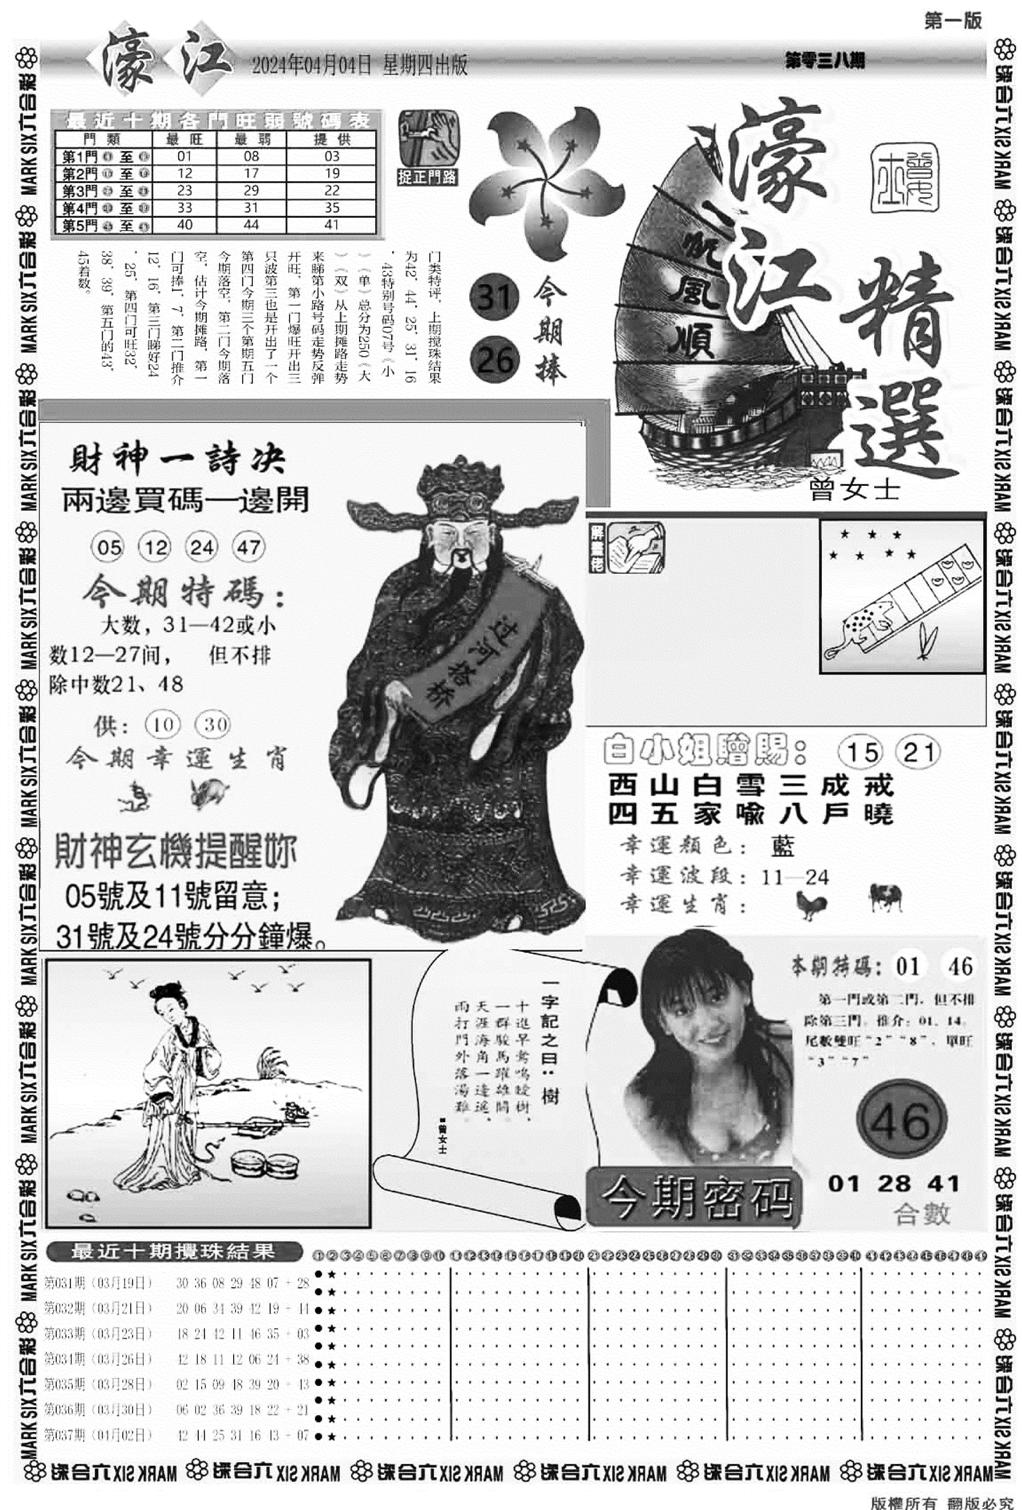 第一版
濠江
2024年04月04日 星期四出版
第零三八期
最近十期各門旺弱號碼表
門類 最旺 最弱 提供
第1門 至 01 08 03
第2門 至 12 17 19
第3門 至 23 29 22
第4門 至 33 31 35
第5門 至 40 44 41
捉正門路
门类特评，上期搅珠结果
为42、44、25、31、16
、43特别号码07号（小
）（单）总分为250（大
）（双）从上期摊路走势
来睇第小路号码走势反弹
开旺，第一门爆旺开出三
只波第三也是开出了一个
第四门今期三个第期五门
今期落空，第二门今期落
空，估计今期摊路，第一
门可捧1、7，第二门推介
12、16，第三门睇好24
、25，第四门可旺32、
38、39，第五门的43、
45着数。
31
26
今期捧
一帆風順
濠江
精選
曾女士
財神一詩决
兩邊買碼一邊開
05 12 24 47
今期特碼：
大数，31—42或小
数12—27间， 但不排
除中数21、48
供： 10 30
今期幸運生肖
財神玄機提醒妳
05號及11號留意；
31號及24號分分鐘爆。
过河搭桥
白小姐贈賜： 15 21
西山白雪三成戒
四五家喻八戶曉
幸運顏色： 藍
幸運波段：11—24
幸運生肖：
一字記之曰：樹
十進早鶯鳴暧樹，
一群駿馬躍雄關。
天涯海角一邊遙，
雨打門外落湯雞。
■曾女士
本期特碼： 01 46
第一門或第二門，但不排
除第三門。推介：01、14。
尾數雙旺“2”“8”，單旺
“3”“7”
46
01 28 41
合數
今期密码
最近十期攪珠結果
①②③④⑤⑥⑦⑧⑨⑩ ⑪⑫⑬⑭⑮⑯⑰⑱⑲⑳ ㉑㉒㉓㉔㉕㉖㉗㉘㉙㉚ ㉛㉜㉝㉞㉟㊱㊲㊳㊴㊵ ㊶㊷㊸㊹㊺㊻㊼㊽㊾
第031期（03月19日） 30 36 08 29 48 07 + 28
第032期（03月21日） 20 06 34 39 42 19 + 44
第033期（03月23日） 48 24 42 11 46 35 + 03
第034期（03月26日） 42 18 11 12 06 24 + 38
第035期（03月28日） 02 15 09 48 39 20 + 43
第036期（03月30日） 06 02 36 39 18 22 + 21
第037期（04月02日） 42 44 25 31 16 43 + 07
MARK SIX 六合彩
版權所有 翻版必究